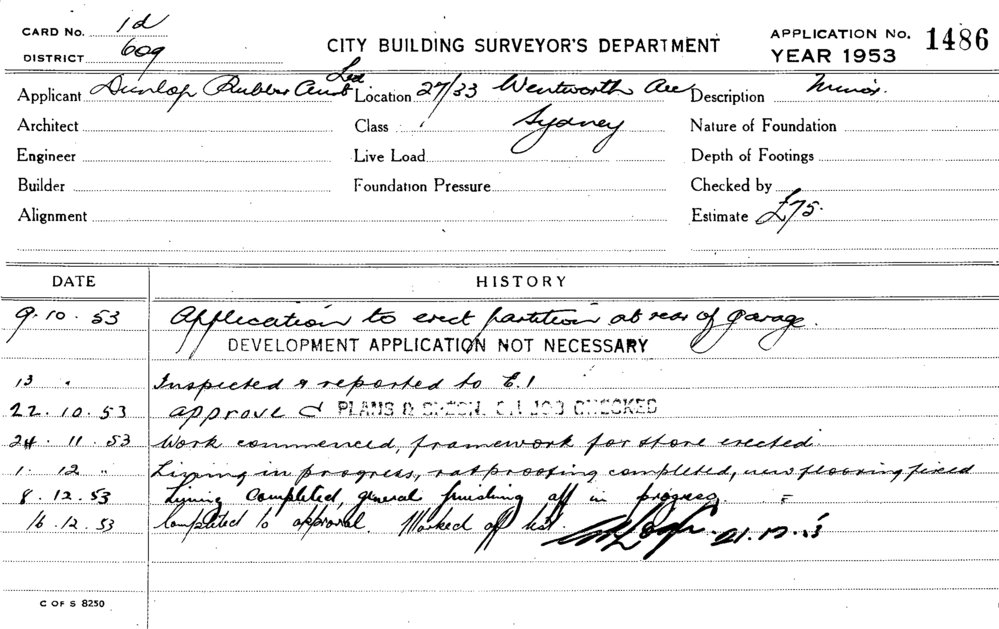 CARD No. 1d
DISTRICT 609
CITY BUILDING SURVEYOR'S DEPARTMENT
APPLICATION No. 1486
YEAR 1953
Applicant Dunlop Rubber Aust Ltd Location 27/33 Wentworth Ave Description Minor
Architect Class Sydney Nature of Foundation
Engineer Live Load Depth of Footings
Builder Foundation Pressure Checked by
Alignment Estimate £75.
DATE HISTORY
9.10.53 Application to erect partition at rear of garage.
DEVELOPMENT APPLICATION NOT NECESSARY
13 " Inspected & reported to E.1
22.10.53 approve d PLANS & SPECN. ON JOB CHECKED
24.11.53 Work commenced, framework for store erected
1.12 " Lining in progress, ratproofing completed, new flooring fixed
8.12.53 Lining completed, general finishing off in progress
16.12.53 Completed to approval. Marked off list. 21.12.53
C OF S 8250